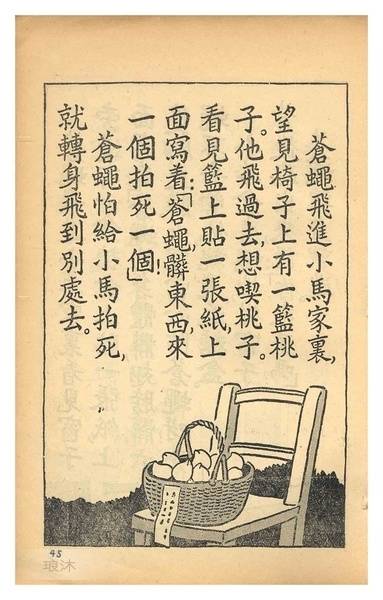 蒼蠅飛進小馬家裏,
望見椅子上有一籃桃
子。他飛過去,想喫桃子。
看見籃上貼一張紙,上
面寫着:「蒼蠅,髒東西,來
一個拍死一個!」
蒼蠅怕給小馬拍死,
就轉身飛到別處去。
45
琅沐